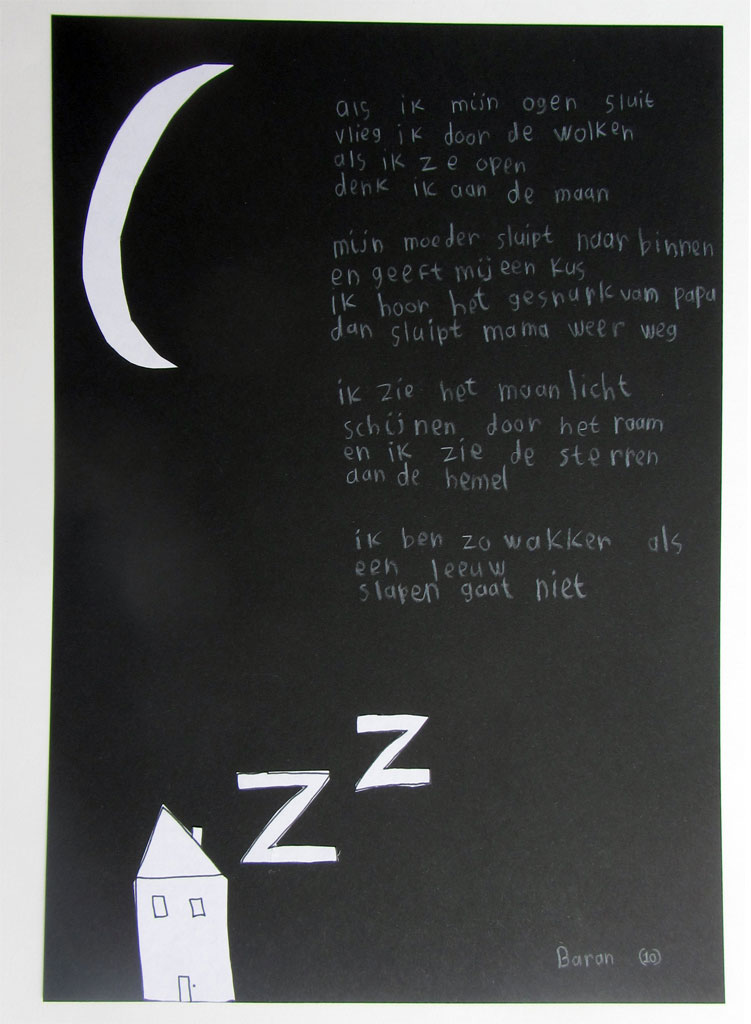 als ik mijn ogen sluit
vlieg ik door de wolken
als ik ze open
denk ik aan de maan
mijn moeder sluipt naar binnen
en geeft mij een kus
ik hoor het gesnurk van papa
dan sluipt mama weer weg
ik zie het maanlicht
schijnen door het raam
en ik zie de sterren
aan de hemel
ik ben zo wakker als
een leeuw
slapen gaat niet
Z
Z
Baran (10)